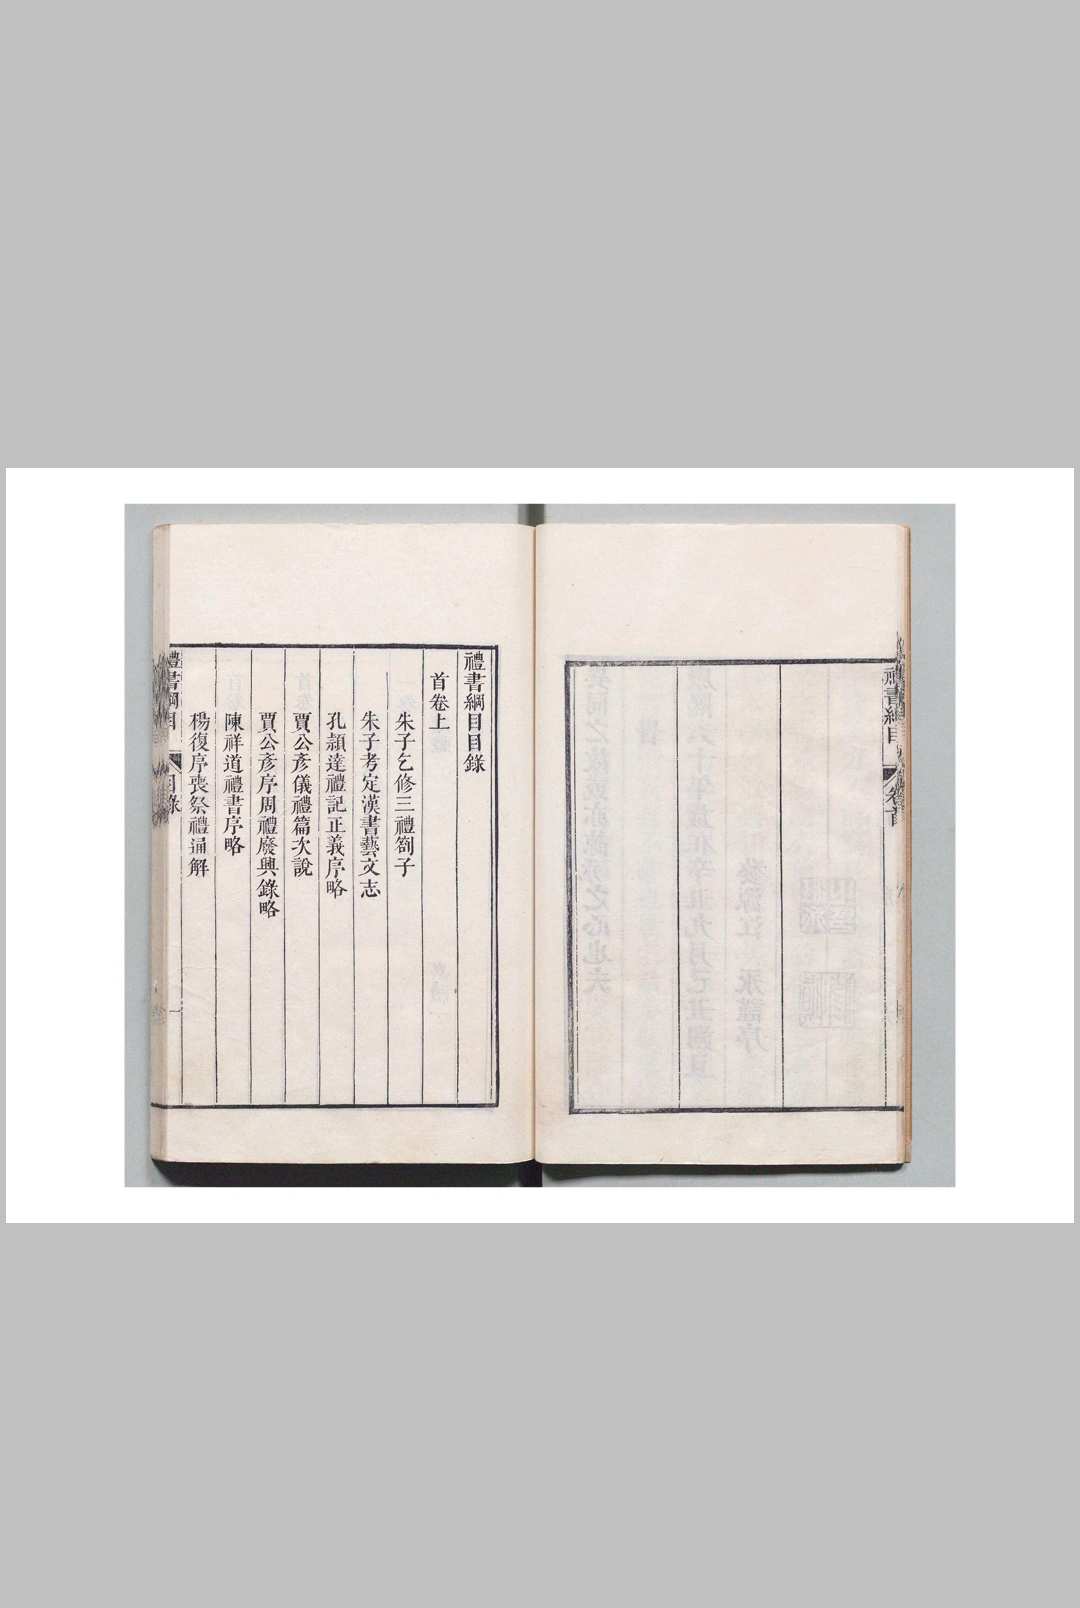 禮書綱目
卷首
禮書綱目目錄
首卷上
朱子乞修三禮劄子
朱子考定漢書藝文志
孔頴達禮記正義序略
賈公彥儀禮篇次說
賈公彥序周禮廢興錄略
陳祥道禮書序略
楊復序喪祭禮通解
禮書綱目
目錄
一